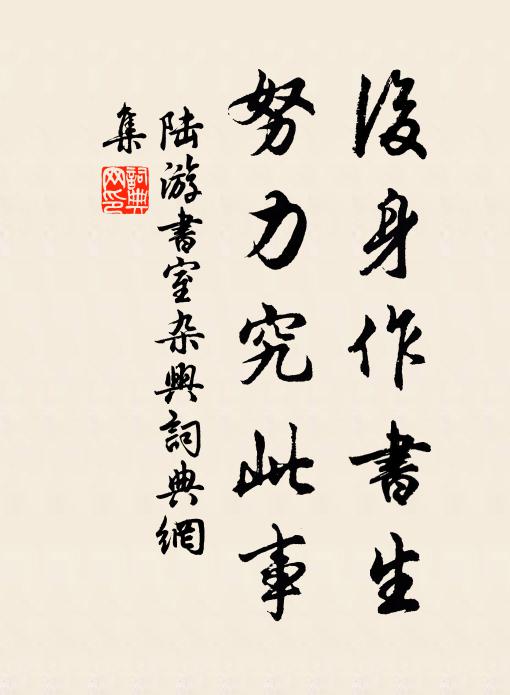 後身作書生
努力究此事
陸游書室杂興詞典網
集
詞典
网印